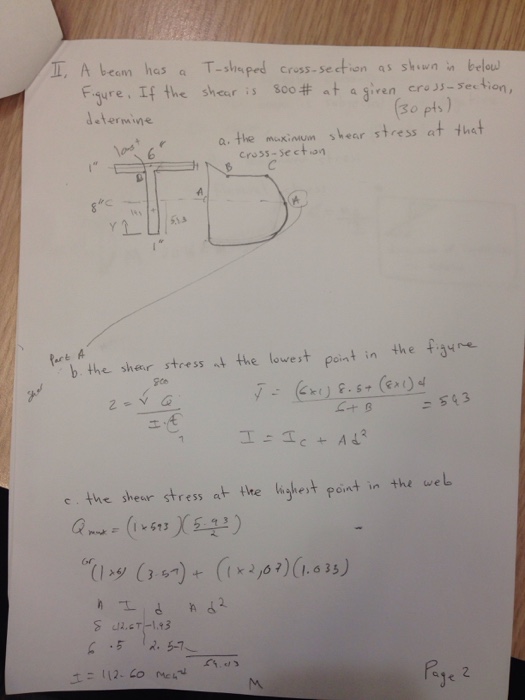 II. A beam has a T-shaped cross-section as shown in below
Figure. If the shear is 800# at a given cross-section,
(30 pts)
determine
a. the maximum shear stress at that
cross-section
6"
1"
B
C
A
A
8"
1"
Part A
b. the shear stress at the lowest point in the figure
800
V Q
I t
ȳ = (6x1) 8.5+ (8x1)4
6+8
= 593
I = Ic + Ad²
c. the shear stress at the highest point in the web
Qmax = (1x593)(5.93
2)
or (1x6) (3.57) + (1x2,07)(1.035)
A I d A d²
8 42.67 -1.93
6 .5 2.57
I = 112.60
M
Page 2